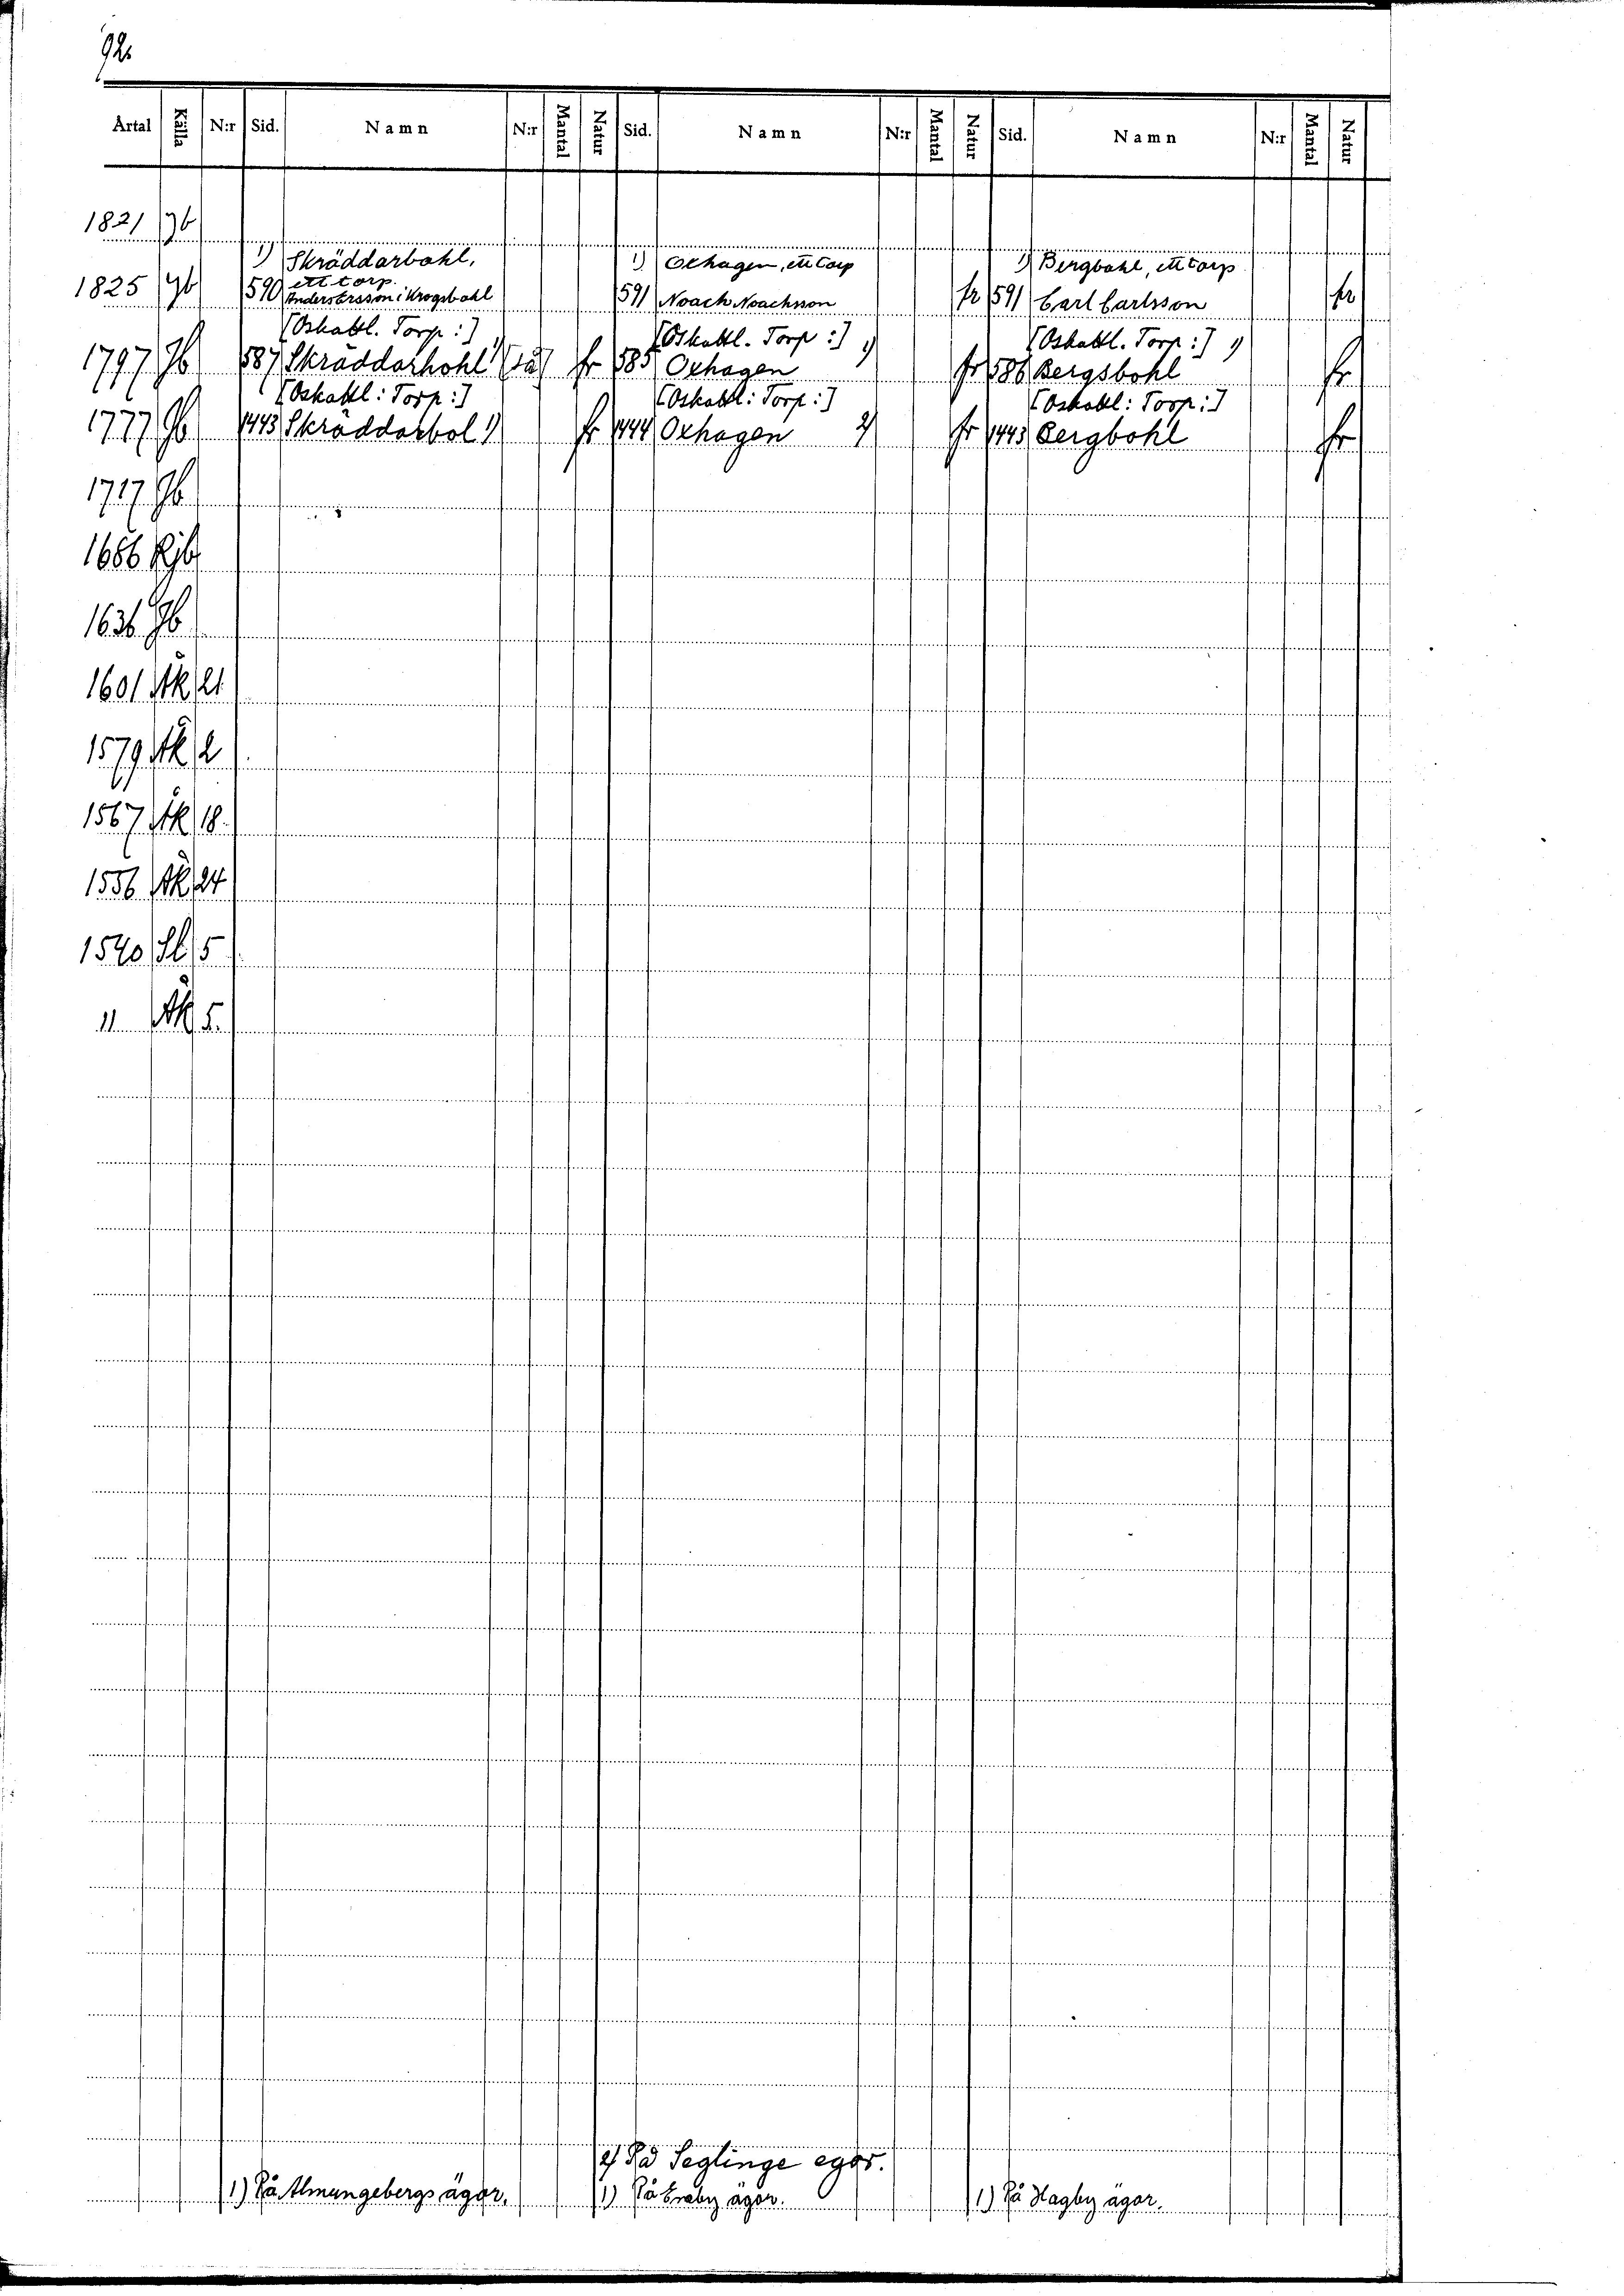 92.
Årtal Källa N:r Sid. Namn N:r Mantal Natur Sid. Namn N:r Mantal Natur Sid. Namn N:r Mantal Natur
1821 Jb
1) Skräddarbohl, 1) Oxhagen, ett torp 1) Bergbohl, ett torp
ett torp
1825 Jb 590 Anders Ersson i Krogsbohl 591 Noach Noachsson fr 591 Carl Carlsson fr
[Oskattl. Torp :] [Oskattl. Torp :] [Oskattl. Torp :]
1797 Jb 587 Skräddarbohl 1) fr 585 Oxhagen 1) fr 586 Bergsbohl 1) fr
[Oskattl: Torp :] [Oskattl: Torp :] [Oskattl: Torp :]
1777 Jb 1443 Skräddarbol 1) fr 1444 Oxhagen 2) fr 1443 Bergbohl fr
1717 Jb
1686 Rjb
1636 Jb
1601 Åk 21
1579 Åk 2
1567 Åk 18.
1556 Åk 24
1540 Sl 5
" Åk 5.
2) På Seglinge egor.
1) På Almungebergs ägor. 1) På ägor. 1) På Hagby ägor.